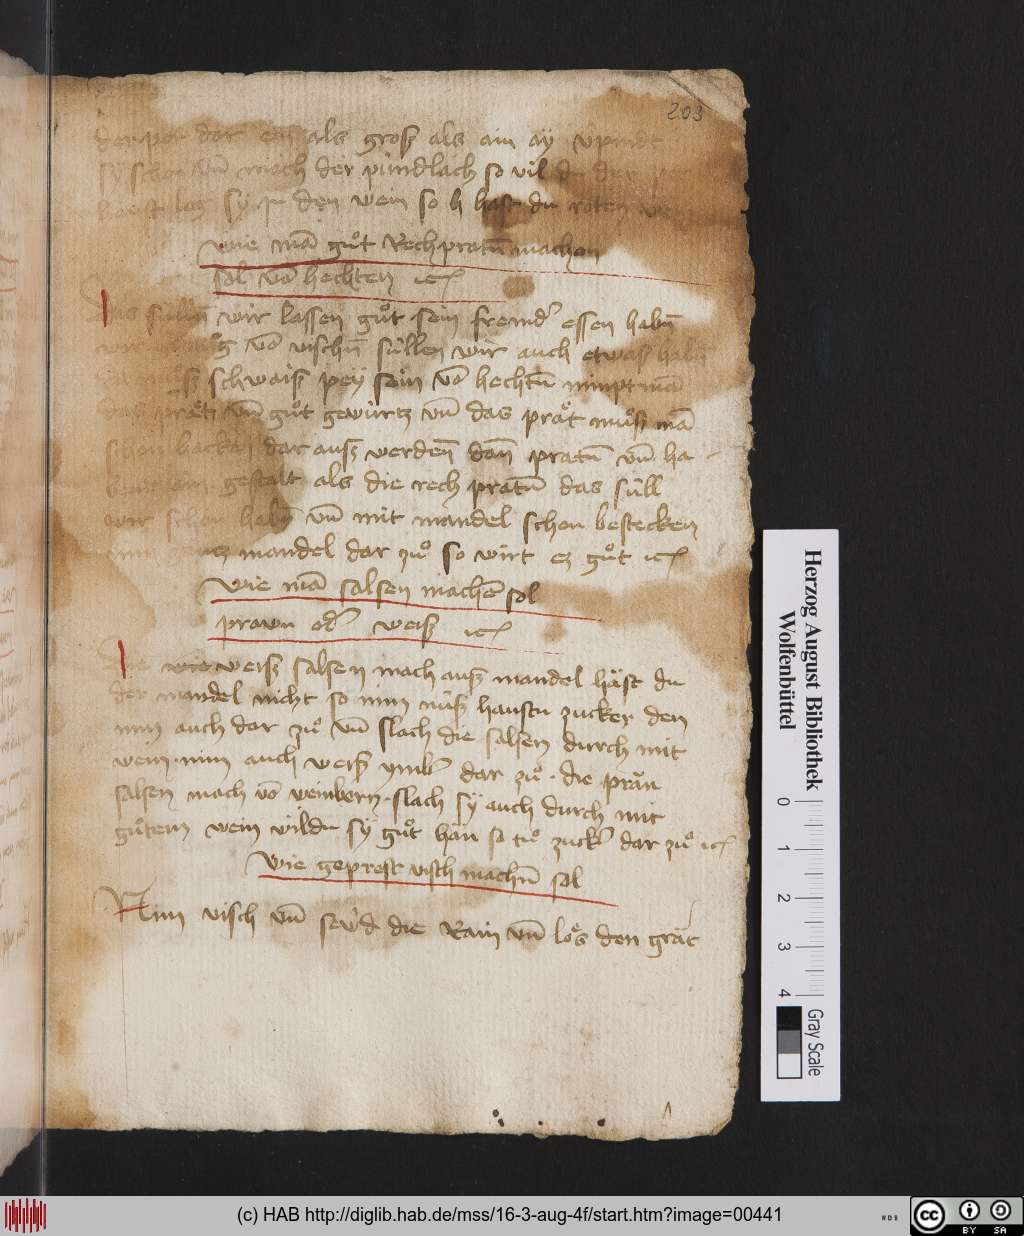 203
dar ein als groß als ain aÿ vpindt
sÿ schon vn̄ mach der pündlach so vil du der
sÿ jn den wein so h hast du roten
wie mā gůt Rech pratn̄ machen
sol vō hechten ⁊c
Das süllen wir lassen gůt sein fremd' essen habn̄
vō vischn̄ süllen wir auch etwaß habn̄
schwaiß peÿ sein vō hechtn̄ nimpt mā
das prät vn̄ gůt gewürtz vn̄ das prät můß mā
schon backen dar auß werden̄ dan̄ pratn̄ vn̄ ha
gestalt als die rech pratn̄ das süll
wir schon habn̄ vn̄ mit mandel schon bestecken
mandel dar zů so wirt ez gůt ⁊c
wie mā salsen machē sol
prawn od' weiß ⁊c
weiß salsen mach auß mandel häst du
der mandel nicht so nim nüß hanstu zucker den
nim auch dar zů vn̄ slach die salsen durch mit
wein nim auch weiß ymb' dar zů die präu
salsen mach vō weinbern slach sÿ auch durch mit
gůtem wein wildu sÿ gůt hän so tů zuck' dar zů ⁊c
Wie geprest visch machn̄ sol
Nim visch vn̄ sewd die Rain vn̄ lös den grät
Herzog August Bibliothek
Wolfenbüttel
0 1 2 3 4
Gray Scale
(c) HAB http://diglib.hab.de/mss/16-3-aug-4f/start.htm?image=00441
WDB
cc BY SA